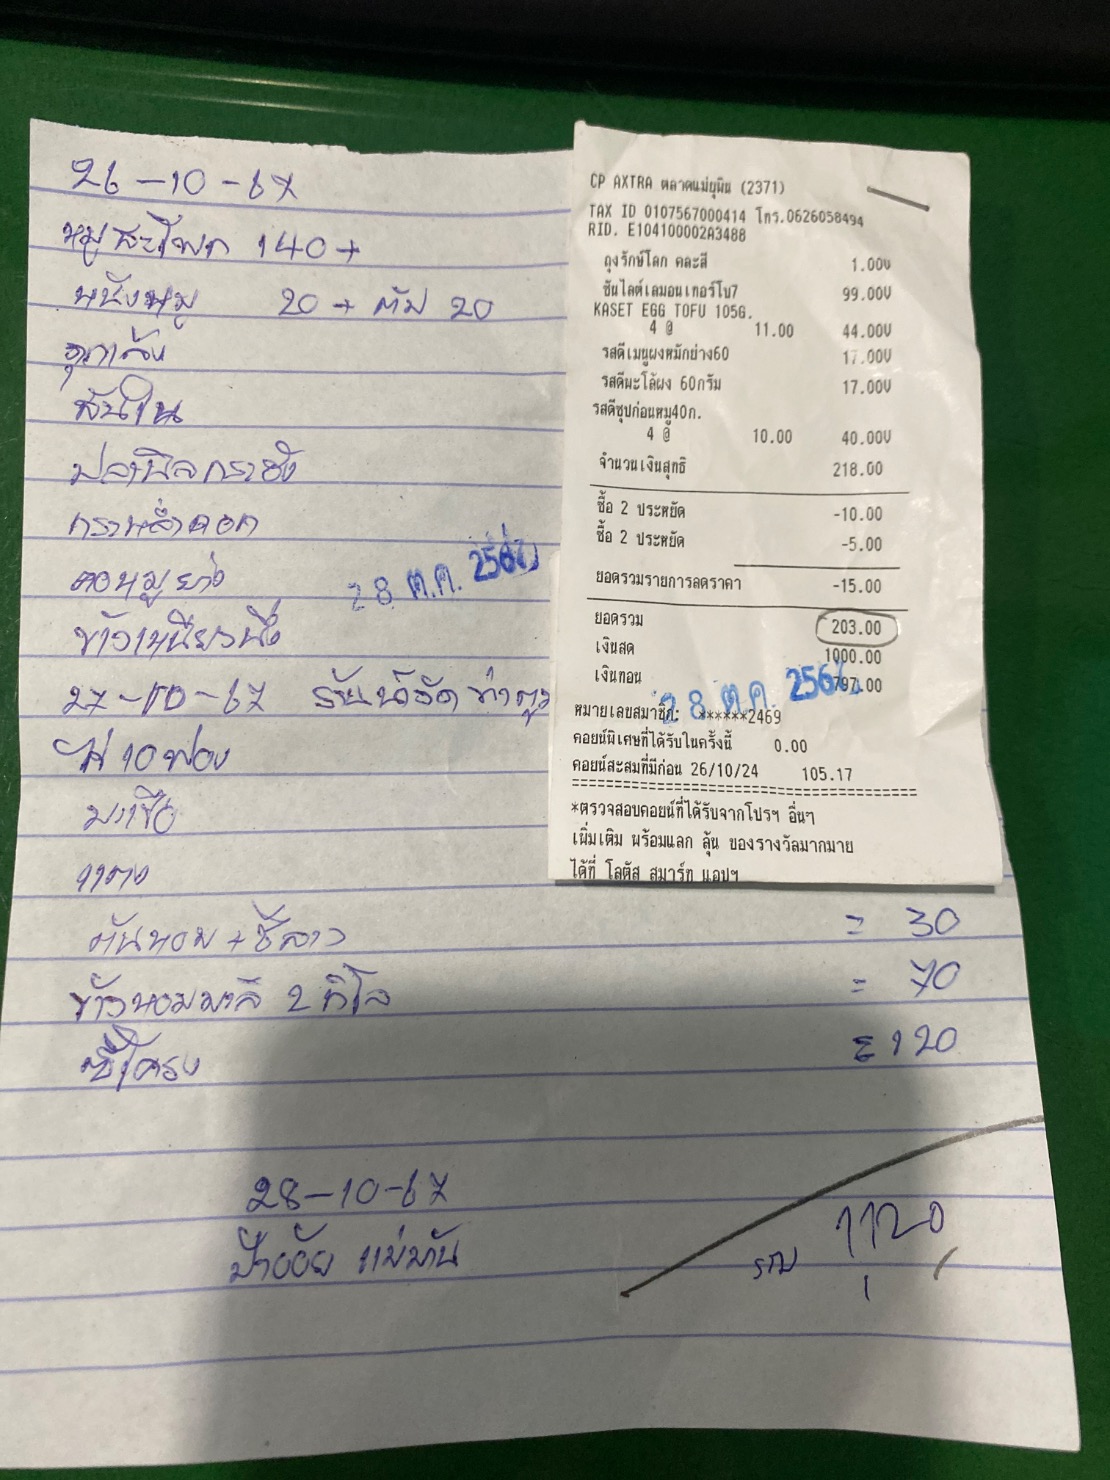 26-10-67
หมูสะโพก 140+
หนังหมู 20+ ตับ 20
สันใน
ปลานิล
คอหมูย่าง
ข้าวเหนียวนึ่ง
28 ต.ค. 2567
27-10-67
ไข่ 10 ฟอง
มะเขือ
แตง
ต้นหอม+ชีลาว = 30
ข้าวหอมมะลิ 2 กิโล = 70
ซี่โครง = 120
28-10-67
ป้าอ้อย แม่มาัน
รวม 1120
CP AXTRA ตลาดแม่ยุมิน (2371)
TAX ID 0107567000414 โทร.0626058494
RID. E104100002A3488
ถุงรักษ์โลก คละสี 1.00V
ซันไลต์เลมอนเทอร์โบ7 99.00V
KASET EGG TOFU 105G.
4 @ 11.00 44.00V
รสดีเมนูผงหมักย่าง60 17.00V
รสดีมะโล้ผง 60กรัม 17.00V
รสดีซุปก้อนหมู40ก.
4 @ 10.00 40.00V
จำนวนเงินสุทธิ 218.00
ซื้อ 2 ประหยัด -10.00
ซื้อ 2 ประหยัด -5.00
ยอดรวมรายการลดราคา -15.00
ยอดรวม 203.00
เงินสด 1000.00
เงินทอน 797.00
28 ต.ค. 2567
หมายเลขสมาชิก: ******2469
คอยน์พิเศษที่ได้รับในครั้งนี้ 0.00
คอยน์สะสมที่มีก่อน 26/10/24 105.17
*ตรวจสอบคอยน์ที่ได้รับจากโปรฯ อื่นๆ
เพิ่มเติม พร้อมแลก ลุ้น ของรางวัลมากมาย
ได้ที่ โลตัส สมาร์ท แอปฯ